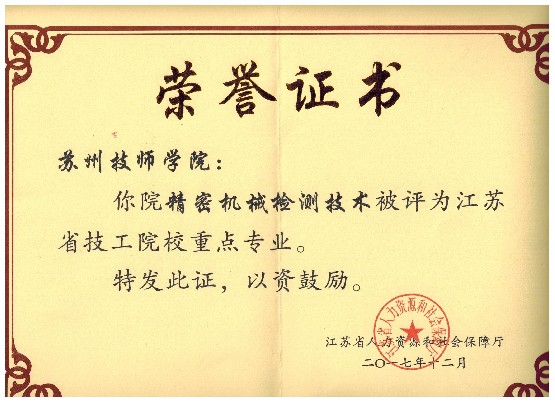 荣誉证书
苏州技师学院：
你院精密机械检测技术被评为江苏
省技工院校重点专业。
特发此证，以资鼓励。
江苏省人力资源和社会保障厅
江苏省人力资源和社会保障厅
二〇一七年十二月